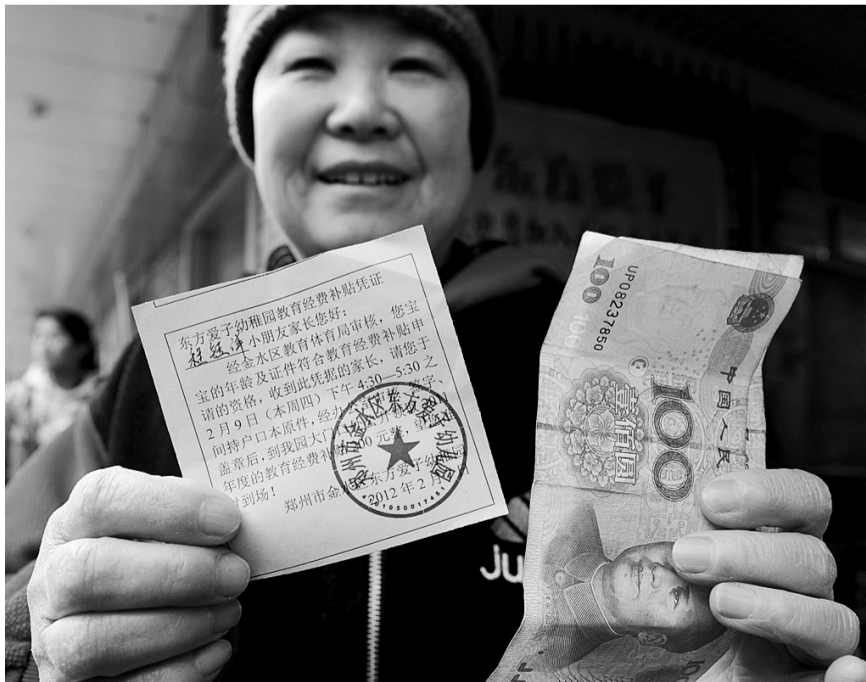 东方爱子幼稚园教育经费补贴凭证
小朋友家长您好：
经金水区教育体育局审核，您宝
宝的年龄及证件符合教育经费补贴申
请的资格，收到此凭据的家长，请您于
2月9日（本周四）下午4:30—5:30之
间持户口本原件，经办
盖章后，到我园大门
年度的教育经费补贴 00元整，
到场！
郑州市金水区东方爱子幼
2012年2月
郑州市金水区东方爱子幼稚园
UP08237850
100
中国人民
壹佰圆
100
ju
东方爱子